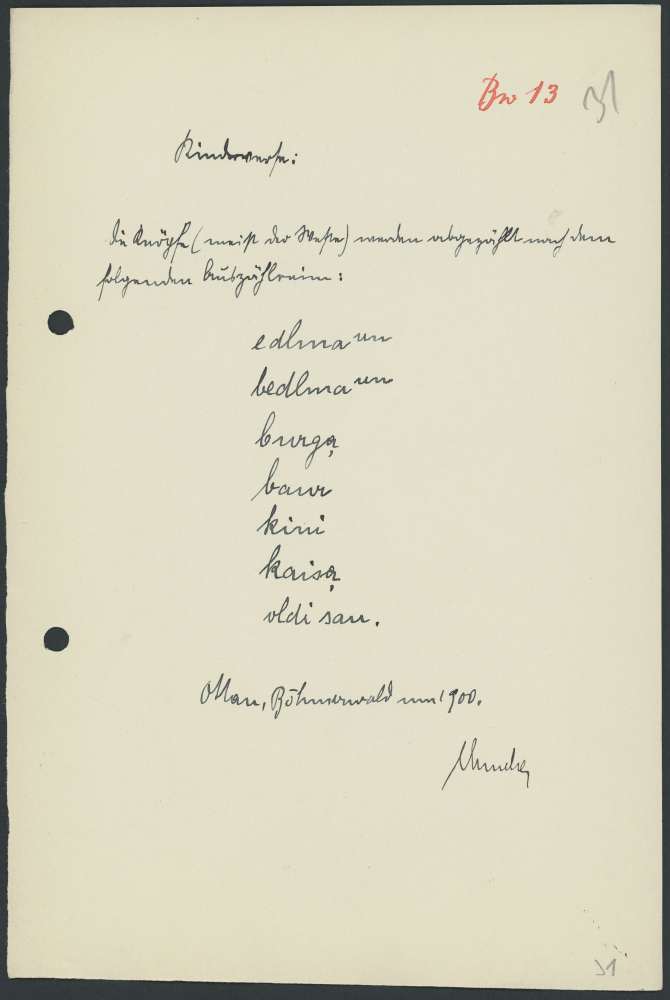 Bw 13 31
Kinderverse:
Die Knöpfe (meist der Weste) werden abgezählt nach dem
folgenden Auszählreim:
edlmaⁿⁿ
bedlmaⁿⁿ
burgą
baur
kini
kaisą
oldi sau.
Ottau, Böhmerwald um 1900.
31